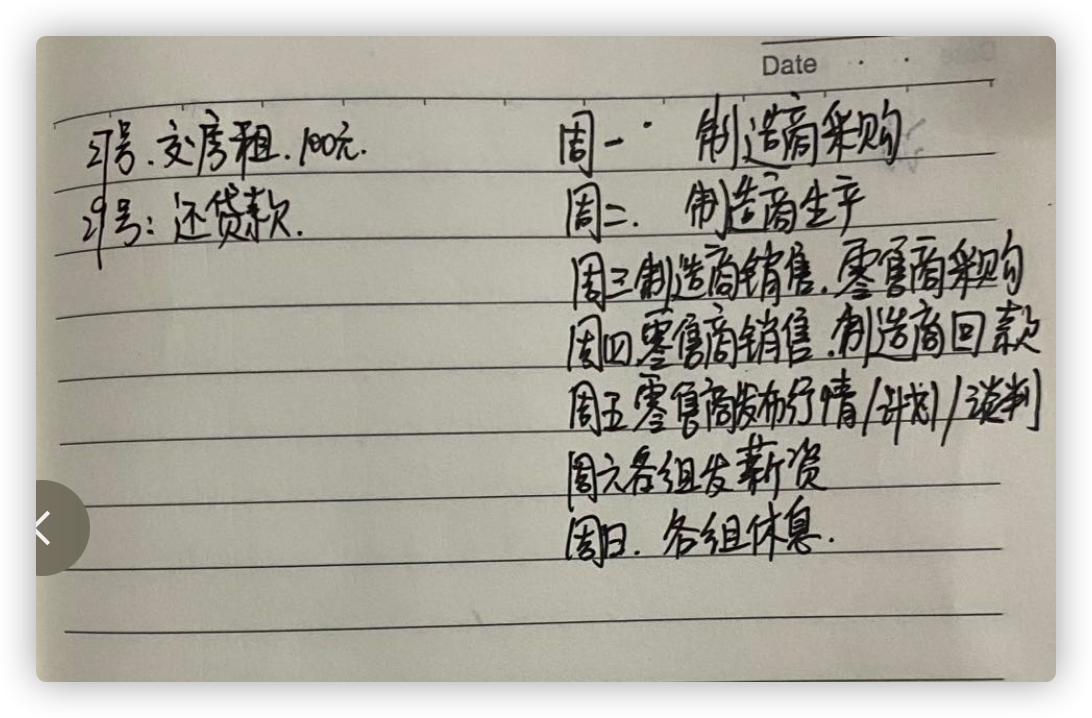 Date
27号.交房租.100元.
29号:还贷款.
周一· 制造商采购
周二. 制造商生产
周三制造商销售.零售商采购
周四零售商销售.制造商回款
周五零售商发布行情/计划/谈判
周六各组发薪资
周日.各组休息.